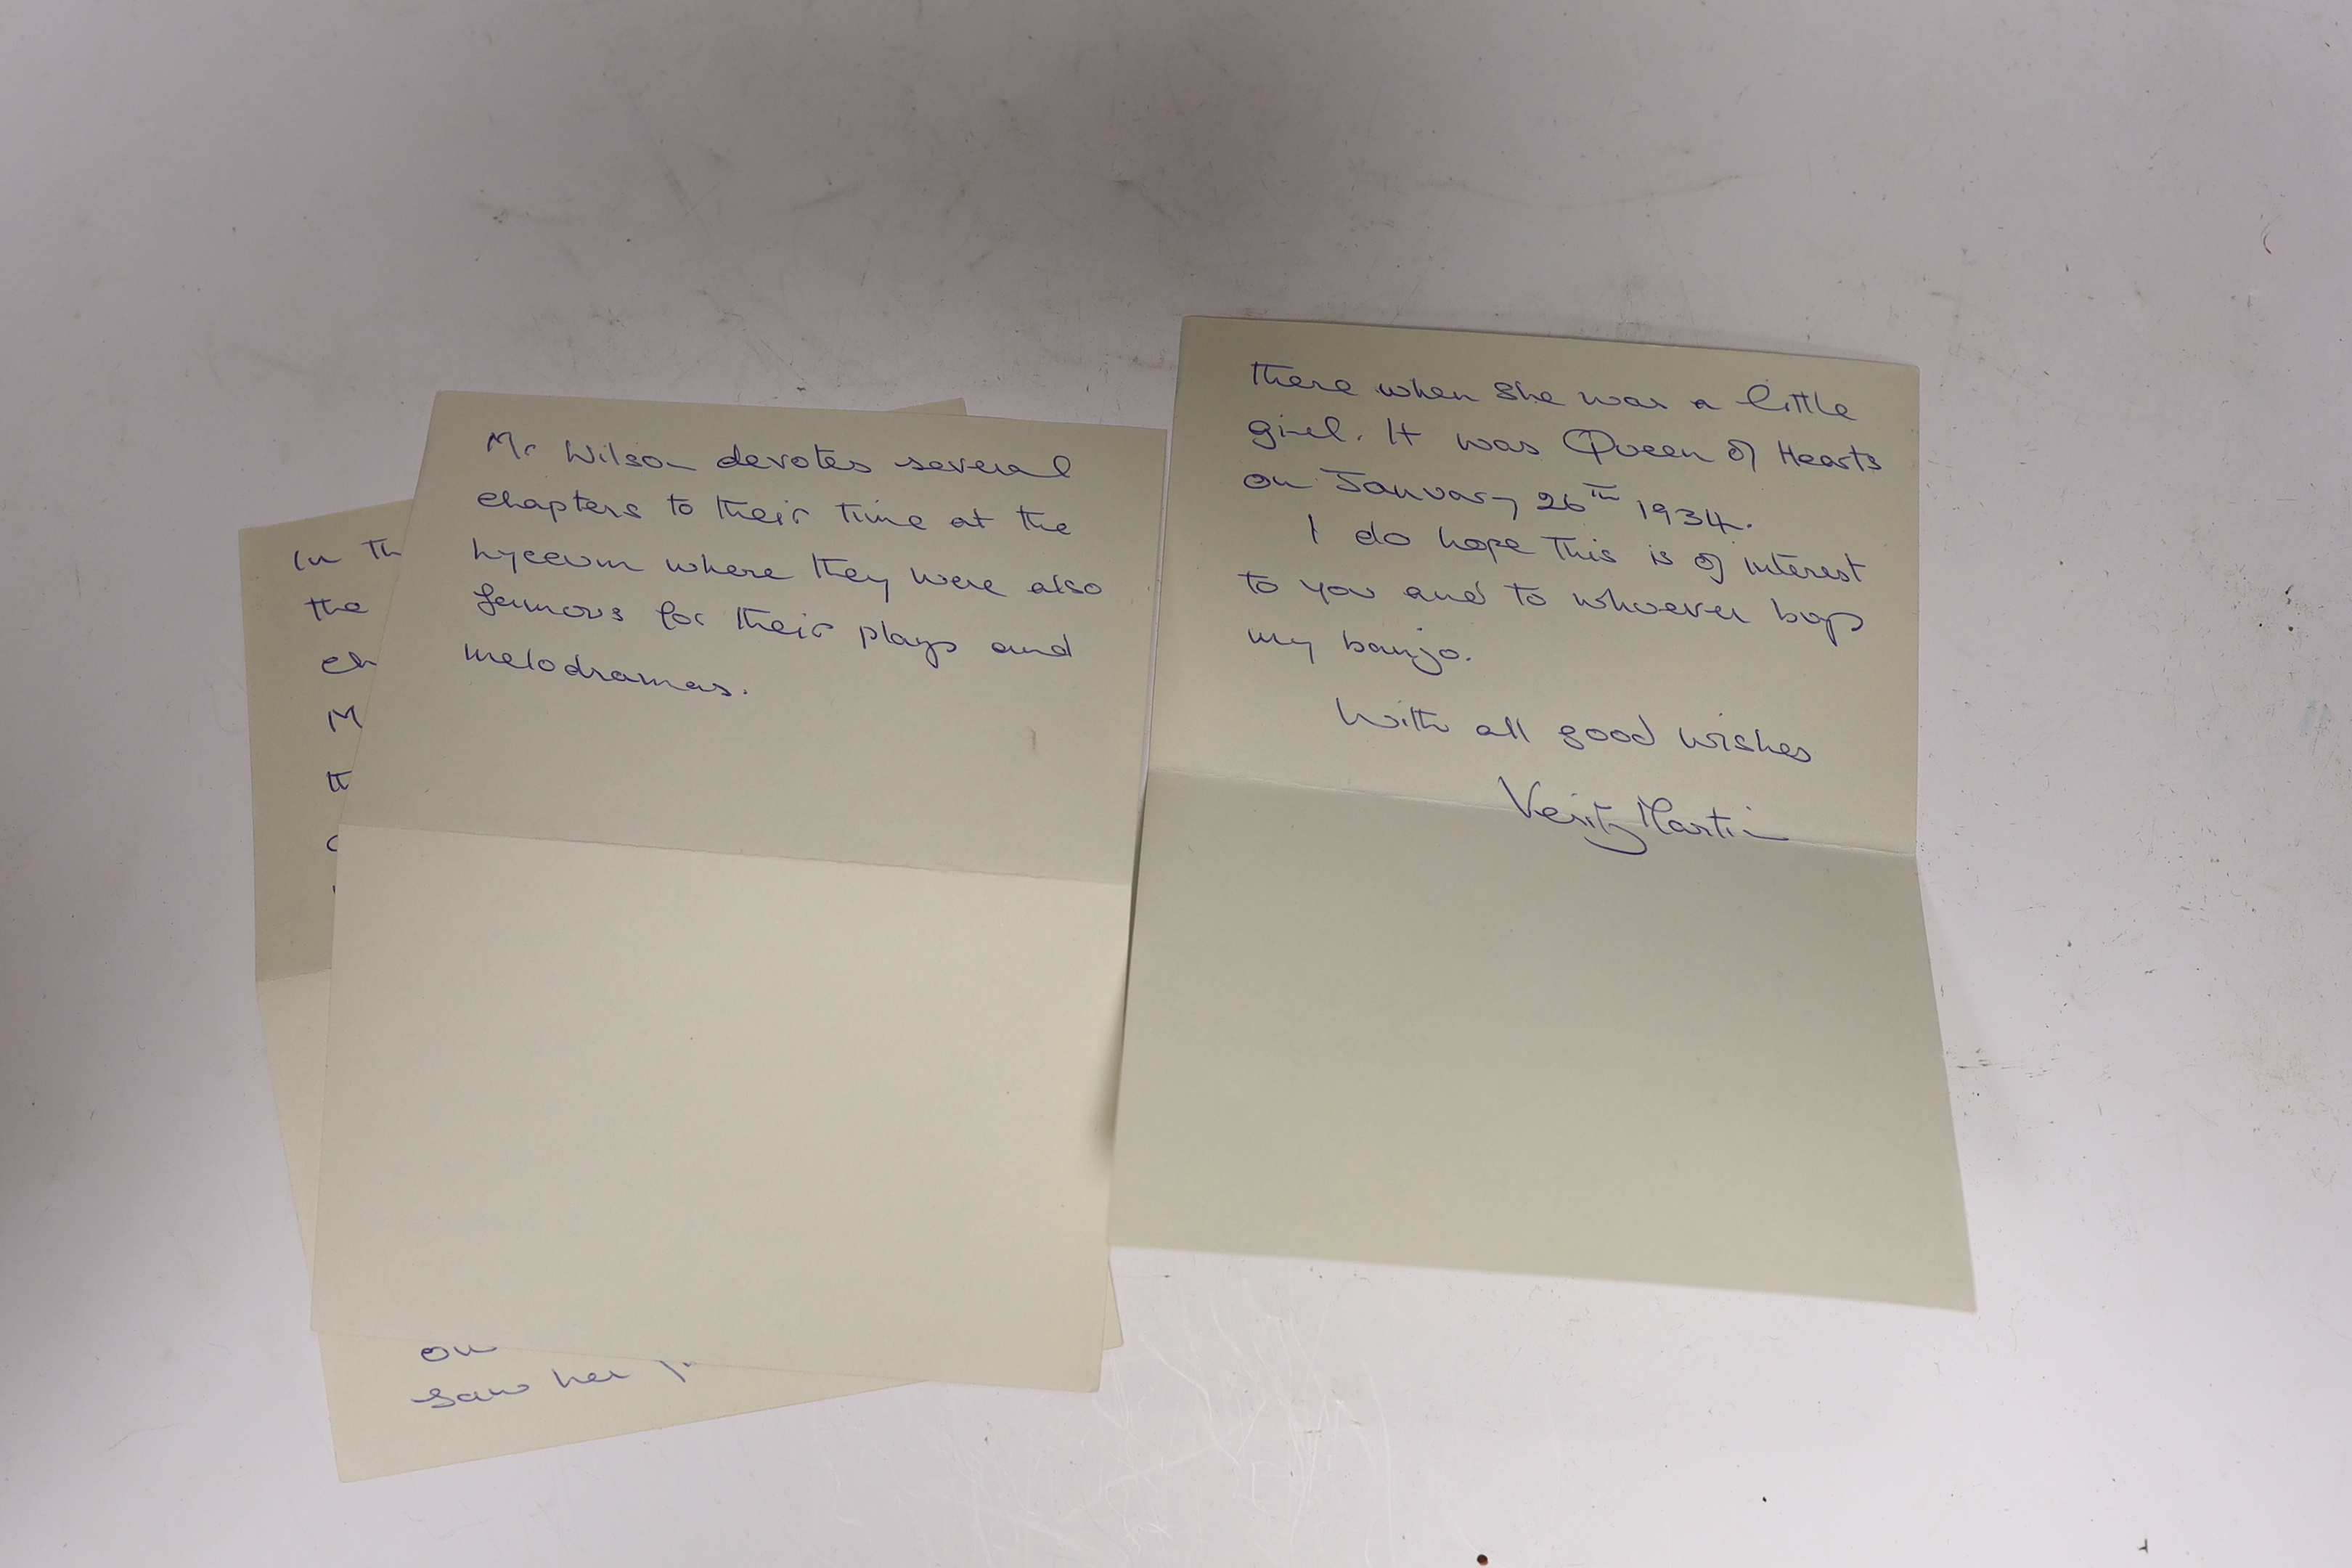 In th
the
ch
M
th
on
saw her
Mr Wilson devotes several
chapters to their time at the
Lyceum where they were also
famous for their plays and
melodramas.
there when she was a little
girl. It was Queen of Hearts
on January 26th 1934.
I do hope this is of interest
to you and to whoever buys
my banjo.
With all good wishes
Verity Martin